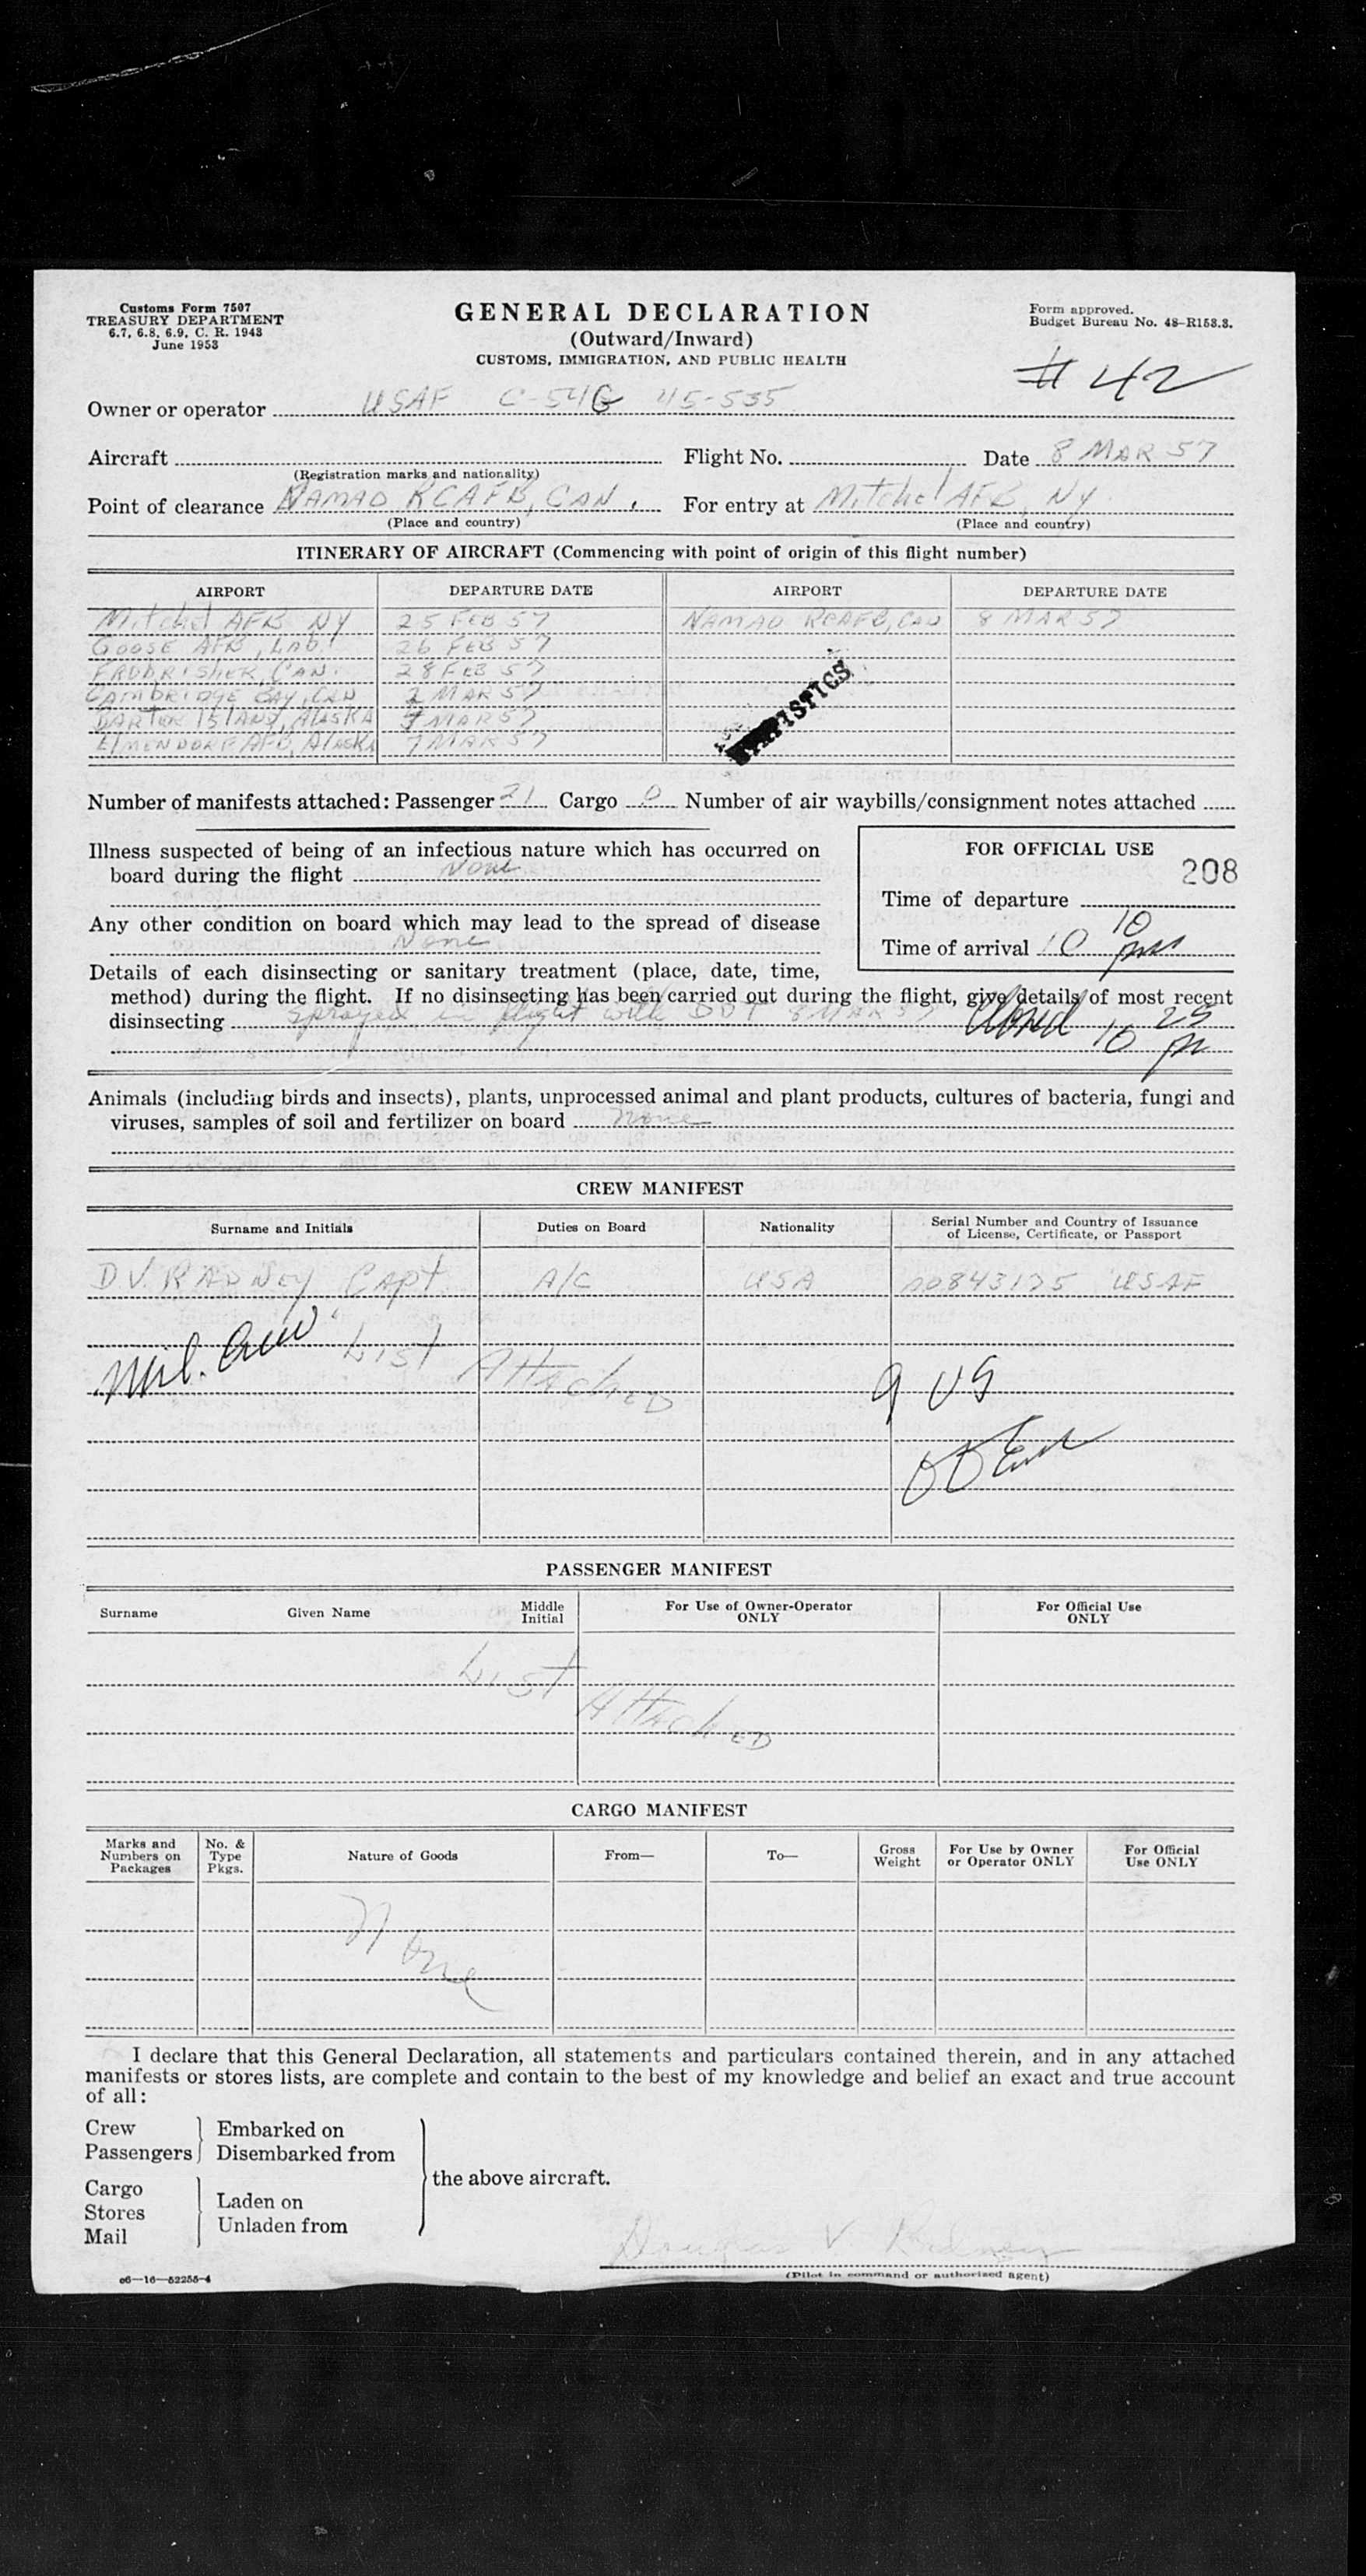 Customs Form 7507
TREASURY DEPARTMENT
6.7, 6.8, 6.9, C. R. 1943
June 1953
GENERAL DECLARATION
(Outward/Inward)
CUSTOMS, IMMIGRATION, AND PUBLIC HEALTH
Form approved.
Budget Bureau No. 48-R153.3.
# 42
Owner or operator USAF C-54G 45-535
Aircraft Flight No. Date 8 MAR 57
(Registration marks and nationality)
Point of clearance NAMAO RCAFB, CAN. For entry at Mitchel AFB, NY
(Place and country) (Place and country)
ITINERARY OF AIRCRAFT (Commencing with point of origin of this flight number)
AIRPORT DEPARTURE DATE AIRPORT DEPARTURE DATE
Mitchel AFB NY 25 FEB 57 NAMAO RCAFB, CAN 8 MAR 57
GOOSE AFB, LAB. 26 FEB 57
FROBRISHER, CAN. 28 FEB 57
CAMBRIDGE BAY, CAN 2 MAR 57
BARTER ISLAND, ALASKA MAR 57
ELMENDORF AFB, ALASKA 7 MAR 57
STATISTICS
Number of manifests attached: Passenger 21 Cargo 0 Number of air waybills/consignment notes attached
Illness suspected of being of an infectious nature which has occurred on
board during the flight None
Any other condition on board which may lead to the spread of disease
None
FOR OFFICIAL USE
208
Time of departure
Time of arrival 10 10 pm
Details of each disinsecting or sanitary treatment (place, date, time,
method) during the flight. If no disinsecting has been carried out during the flight, give details of most recent
disinsecting sprayed in flight with DDT 8 MAR 57
10 25 pm
Animals (including birds and insects), plants, unprocessed animal and plant products, cultures of bacteria, fungi and
viruses, samples of soil and fertilizer on board none
CREW MANIFEST
Surname and Initials Duties on Board Nationality Serial Number and Country of Issuance
of License, Certificate, or Passport
D.V. RADNEY CAPT. A/C USA AO843175 USAF
Mil. Crew LIST ATTACHED 9 US
PASSENGER MANIFEST
Surname Given Name Middle
Initial
For Use of Owner-Operator
ONLY
For Official Use
ONLY
LIST ATTACHED
CARGO MANIFEST
Marks and
Numbers on
Packages
No. &
Type
Pkgs.
Nature of Goods From— To— Gross
Weight
For Use by Owner
or Operator ONLY
For Official
Use ONLY
None
I declare that this General Declaration, all statements and particulars contained therein, and in any attached
manifests or stores lists, are complete and contain to the best of my knowledge and belief an exact and true account
of all:
Crew Embarked on
Passengers Disembarked from
the above aircraft.
Cargo
Stores Laden on
Mail Unladen from
Douglas V. Radney
(Pilot in command or authorized agent)
c6—16—52255-4